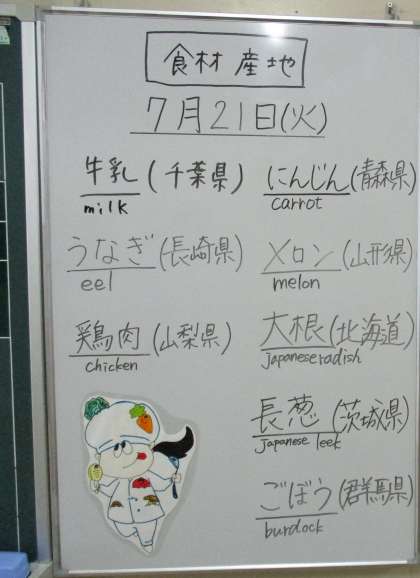 食材 産地
7月21日(火)
牛乳(千葉県)
milk
うなぎ(長崎県)
eel
鶏肉(山梨県)
chicken
にんじん(青森県)
carrot
メロン(山形県)
melon
大根(北海道)
japanese radish
長葱(茨城県)
Japanese leek
ごぼう(群馬県)
burdock